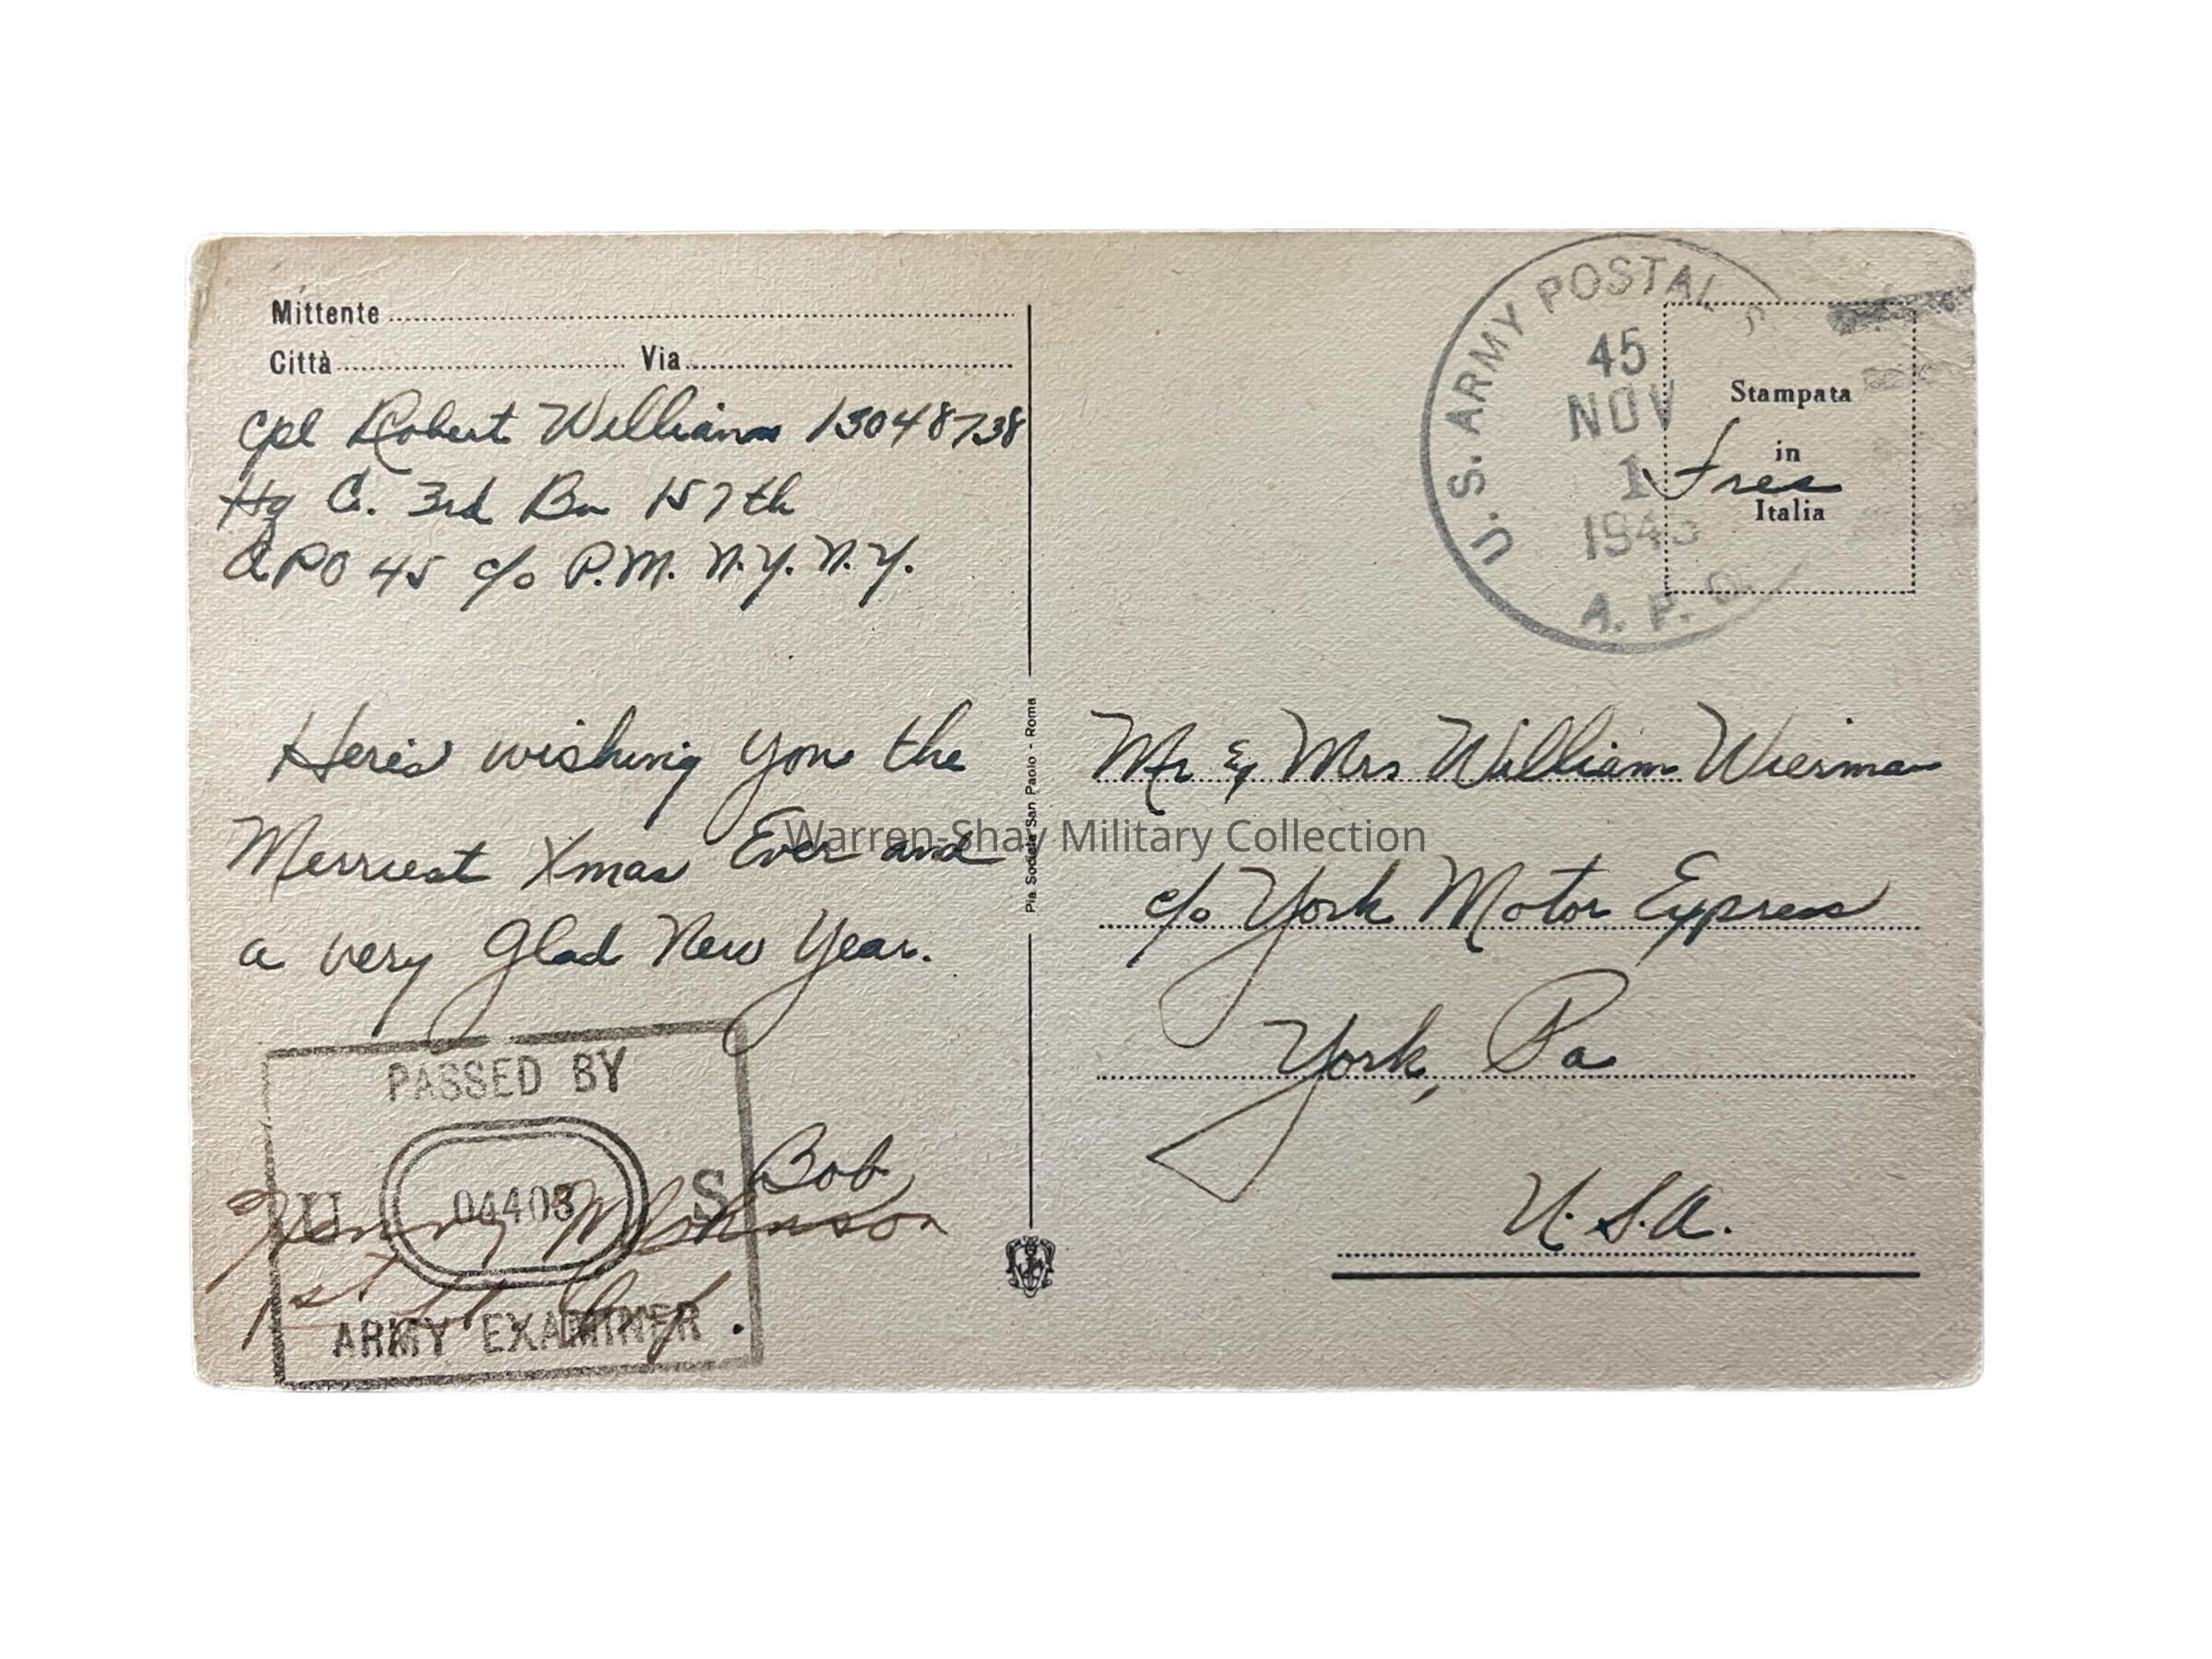 Mittente
Città Via
Cpl Robert Williams 13048738
Hq Co. 3rd Bn 157th
APO 45 c/o P.M. N.Y. N.Y.
Here's wishing you the
Merriest Xmas Ever and
a very Glad New Year.
Bob
PASSED BY
U 04403 S
ARMY EXAMINER
Henry M Johnson
1st Lt Inf
Pia Società San Paolo - Roma
U.S. ARMY POSTAL S
45
NOV
1
1943
A. P. O.
Stampata
in
Italia
Free
Mr & Mrs William Wierman
c/o York Motor Express
York, Pa
U.S.A.
Warren-Shay Military Collection